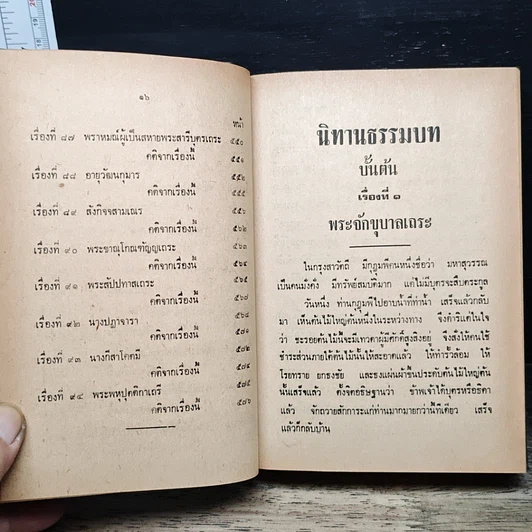 ๑๖
หน้า
เรื่องที่ ๘๗ พราหมณ์ผู้เป็นสหายพระสารีบุตรเถระ ๕๕๐
คติจากเรื่องนี้ ๕๕๑
เรื่องที่ ๘๘ อายุวัฒนกุมาร ๕๕๒
คติจากเรื่องนี้ ๕๕๕
เรื่องที่ ๘๙ สังกิจจสามเณร ๕๕๖
คติจากเรื่องนี้ ๕๖๒
เรื่องที่ ๙๐ พระขาณุโกณฑัญญเถระ ๕๖๓
คติจากเรื่องนี้ ๕๖๔
เรื่องที่ ๙๑ พระสัปปทาสเถระ ๕๖๕
คติจากเรื่องนี้ ๕๖๘
เรื่องที่ ๙๒ นางปฏาจารา
คติจากเรื่องนี้
เรื่องที่ ๙๓ นางกีสาโคตมี
คติจากเรื่องนี้
เรื่องที่ ๙๔ พระพหุปุตติกาเถรี
คติจากเรื่องนี้ ๕๗๖
นิทานธรรมบท
บั้นต้น
เรื่องที่ ๑
พระจักขุบาลเถระ
ในกรุงสาวัตถี มีกุฎุมพีคนหนึ่งชื่อว่า มหาสุวรรณ
เป็นคนมั่งคั่ง มีทรัพย์สมบัติมาก แต่ไม่มีบุตรจะสืบตระกูล
วันหนึ่ง ท่านกุฎุมพีไปอาบน้ำที่ท่าน้ำ เสร็จแล้วกลับ
มา เห็นต้นไม้ใหญ่ต้นหนึ่งในระหว่างทาง จึงดำริแต่ในใจ
ว่า ชะรอยต้นไม้นี้จะมีเทวดาผู้มีศักดิ์สูงสิงอยู่ จึงสั่งให้คนใช้
ชำระส่วนภายใต้ต้นไม้นั้นให้สะอาดแล้ว ให้ทำรั้วล้อม ให้
โรยทราย ยกธงชัย และธงแผ่นผ้าขึ้นประดับต้นไม้ใหญ่ต้น
นั้นเสร็จแล้ว ตั้งจิตอธิษฐานว่า ข้าพเจ้าได้บุตรหรือธิดา
แล้ว จักถวายสักการะแก่ท่านมากมายกว่านี้ทีเดียว เสร็จ
แล้วก็กลับบ้าน